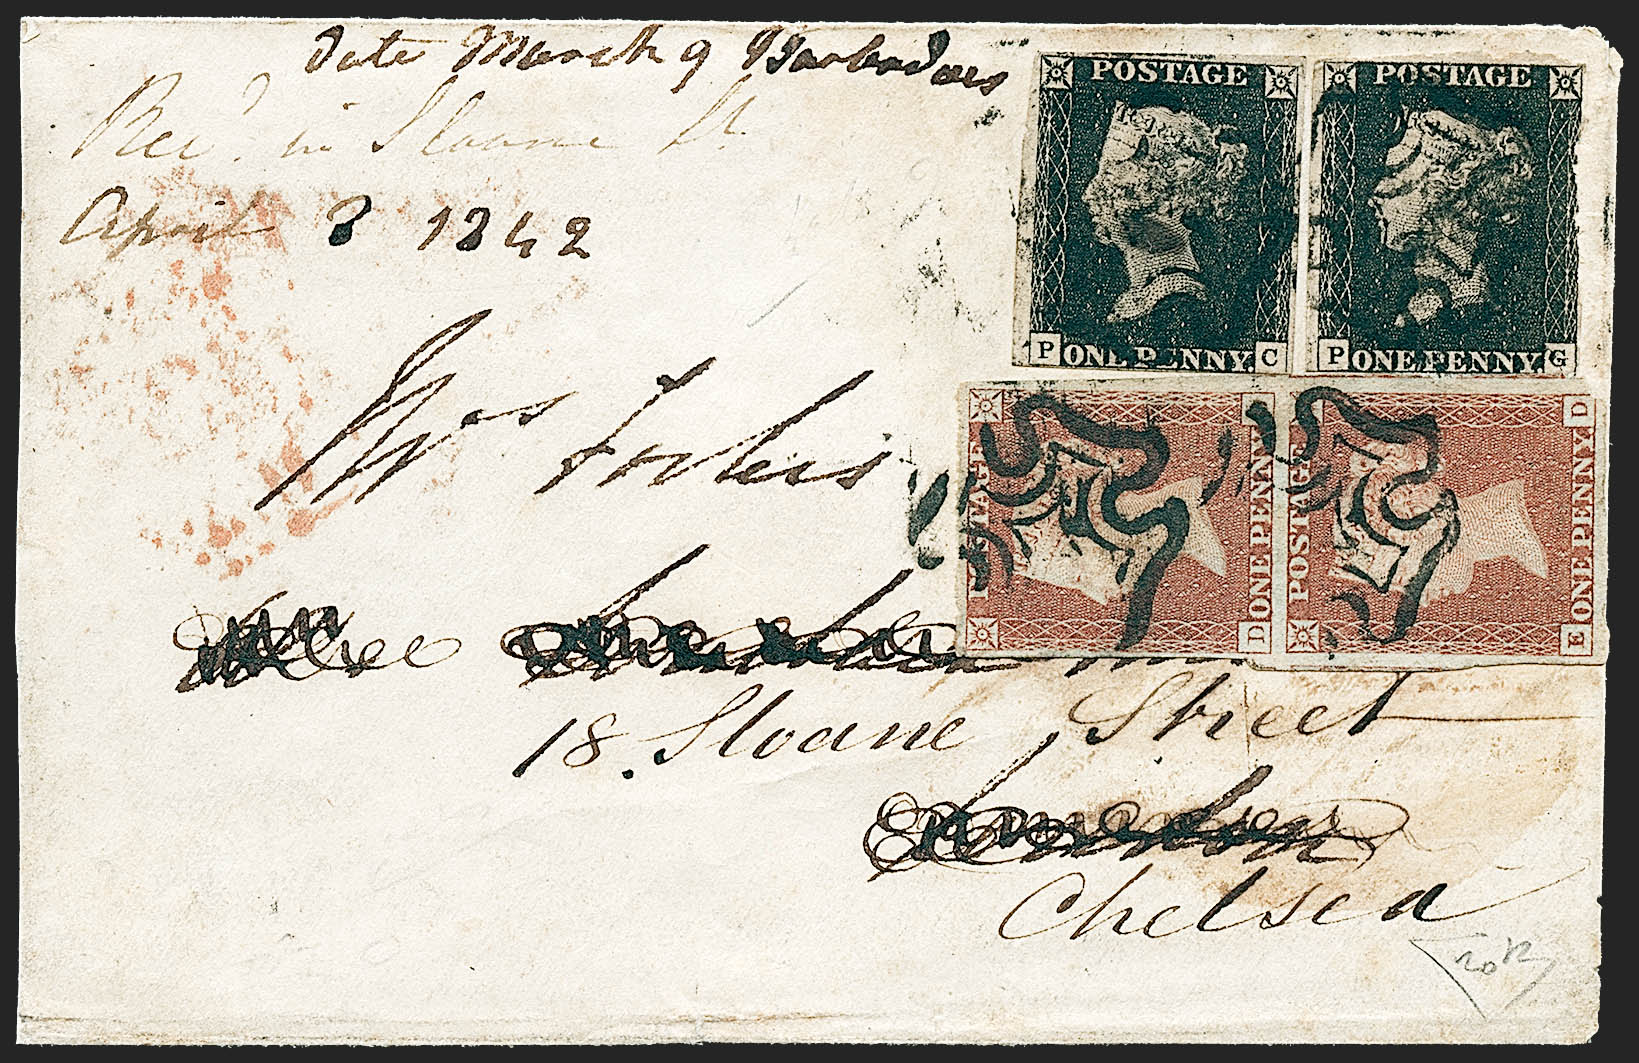 Date March 9 Barbadoes
Recd. in Sloane St.
April 8 1842
POSTAGE
P ONE PENNY. C
POSTAGE
P ONE PENNY. G
Mrs Forbes
POSTAGE
D ONE PENNY
POSTAGE
E ONE PENNY D
18. Sloane Street
London
Chelsea